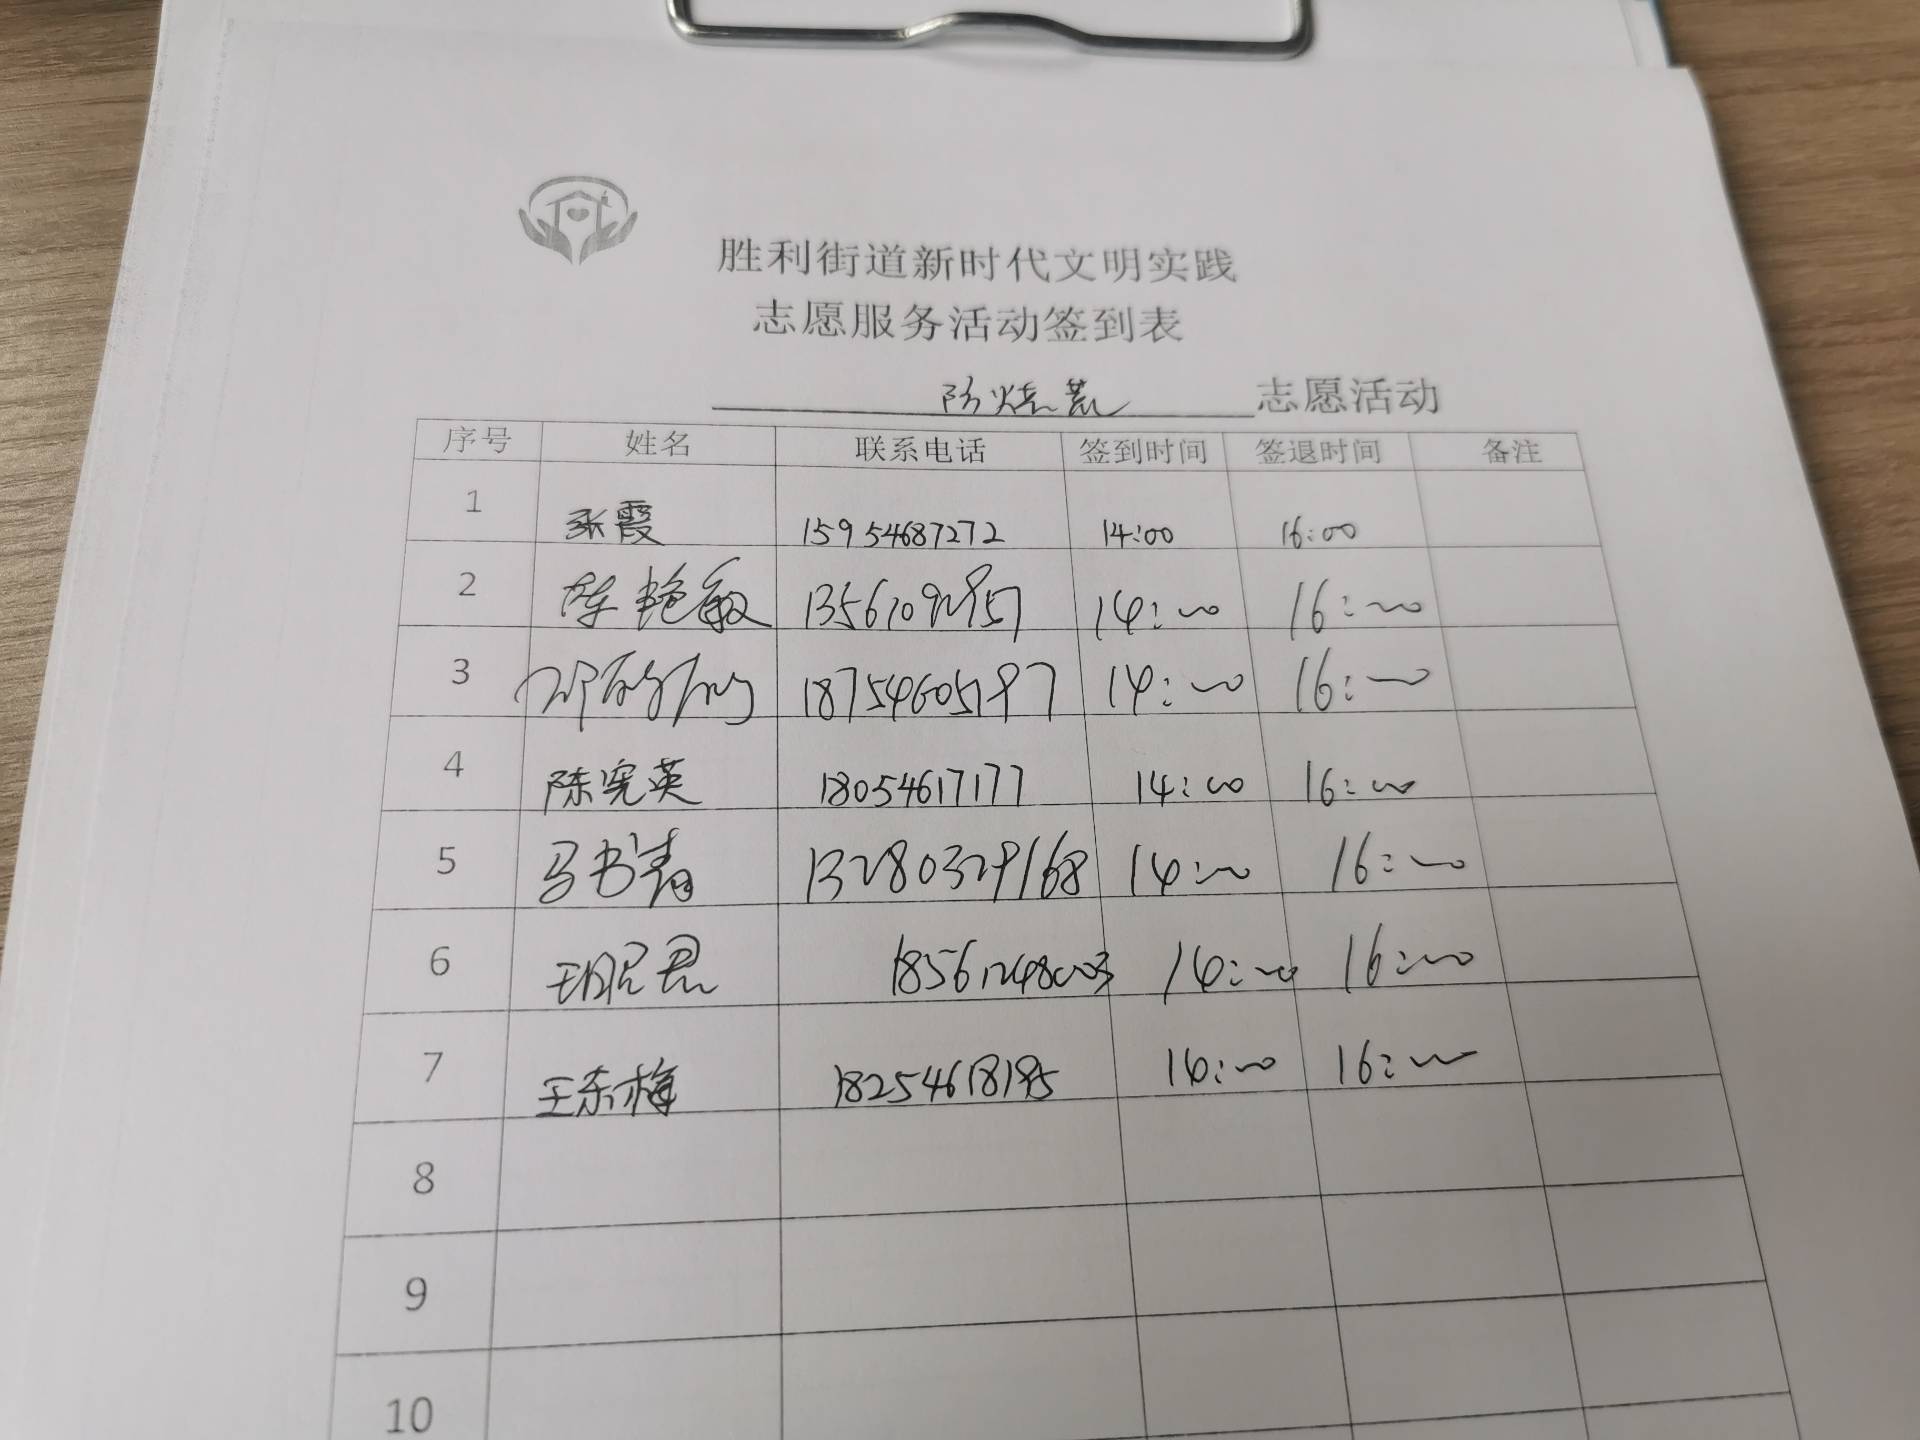 胜利街道新时代文明实践
志愿服务活动签到表
防烧荒 志愿活动
序号 姓名 联系电话 签到时间 签退时间 备注
1 张霞 15954687272 14:00 16:00
2 陈艳敏 13561092957 14:00 16:00
3 18754605797 14:00 16:00
4 陈宪英 18054617177 14:00 16:00
5 马书青 13280329168 14:00 16:00
6 18561248003 14:00 16:00
7 王东梅 18254618195 14:00 16:00
8
9
10